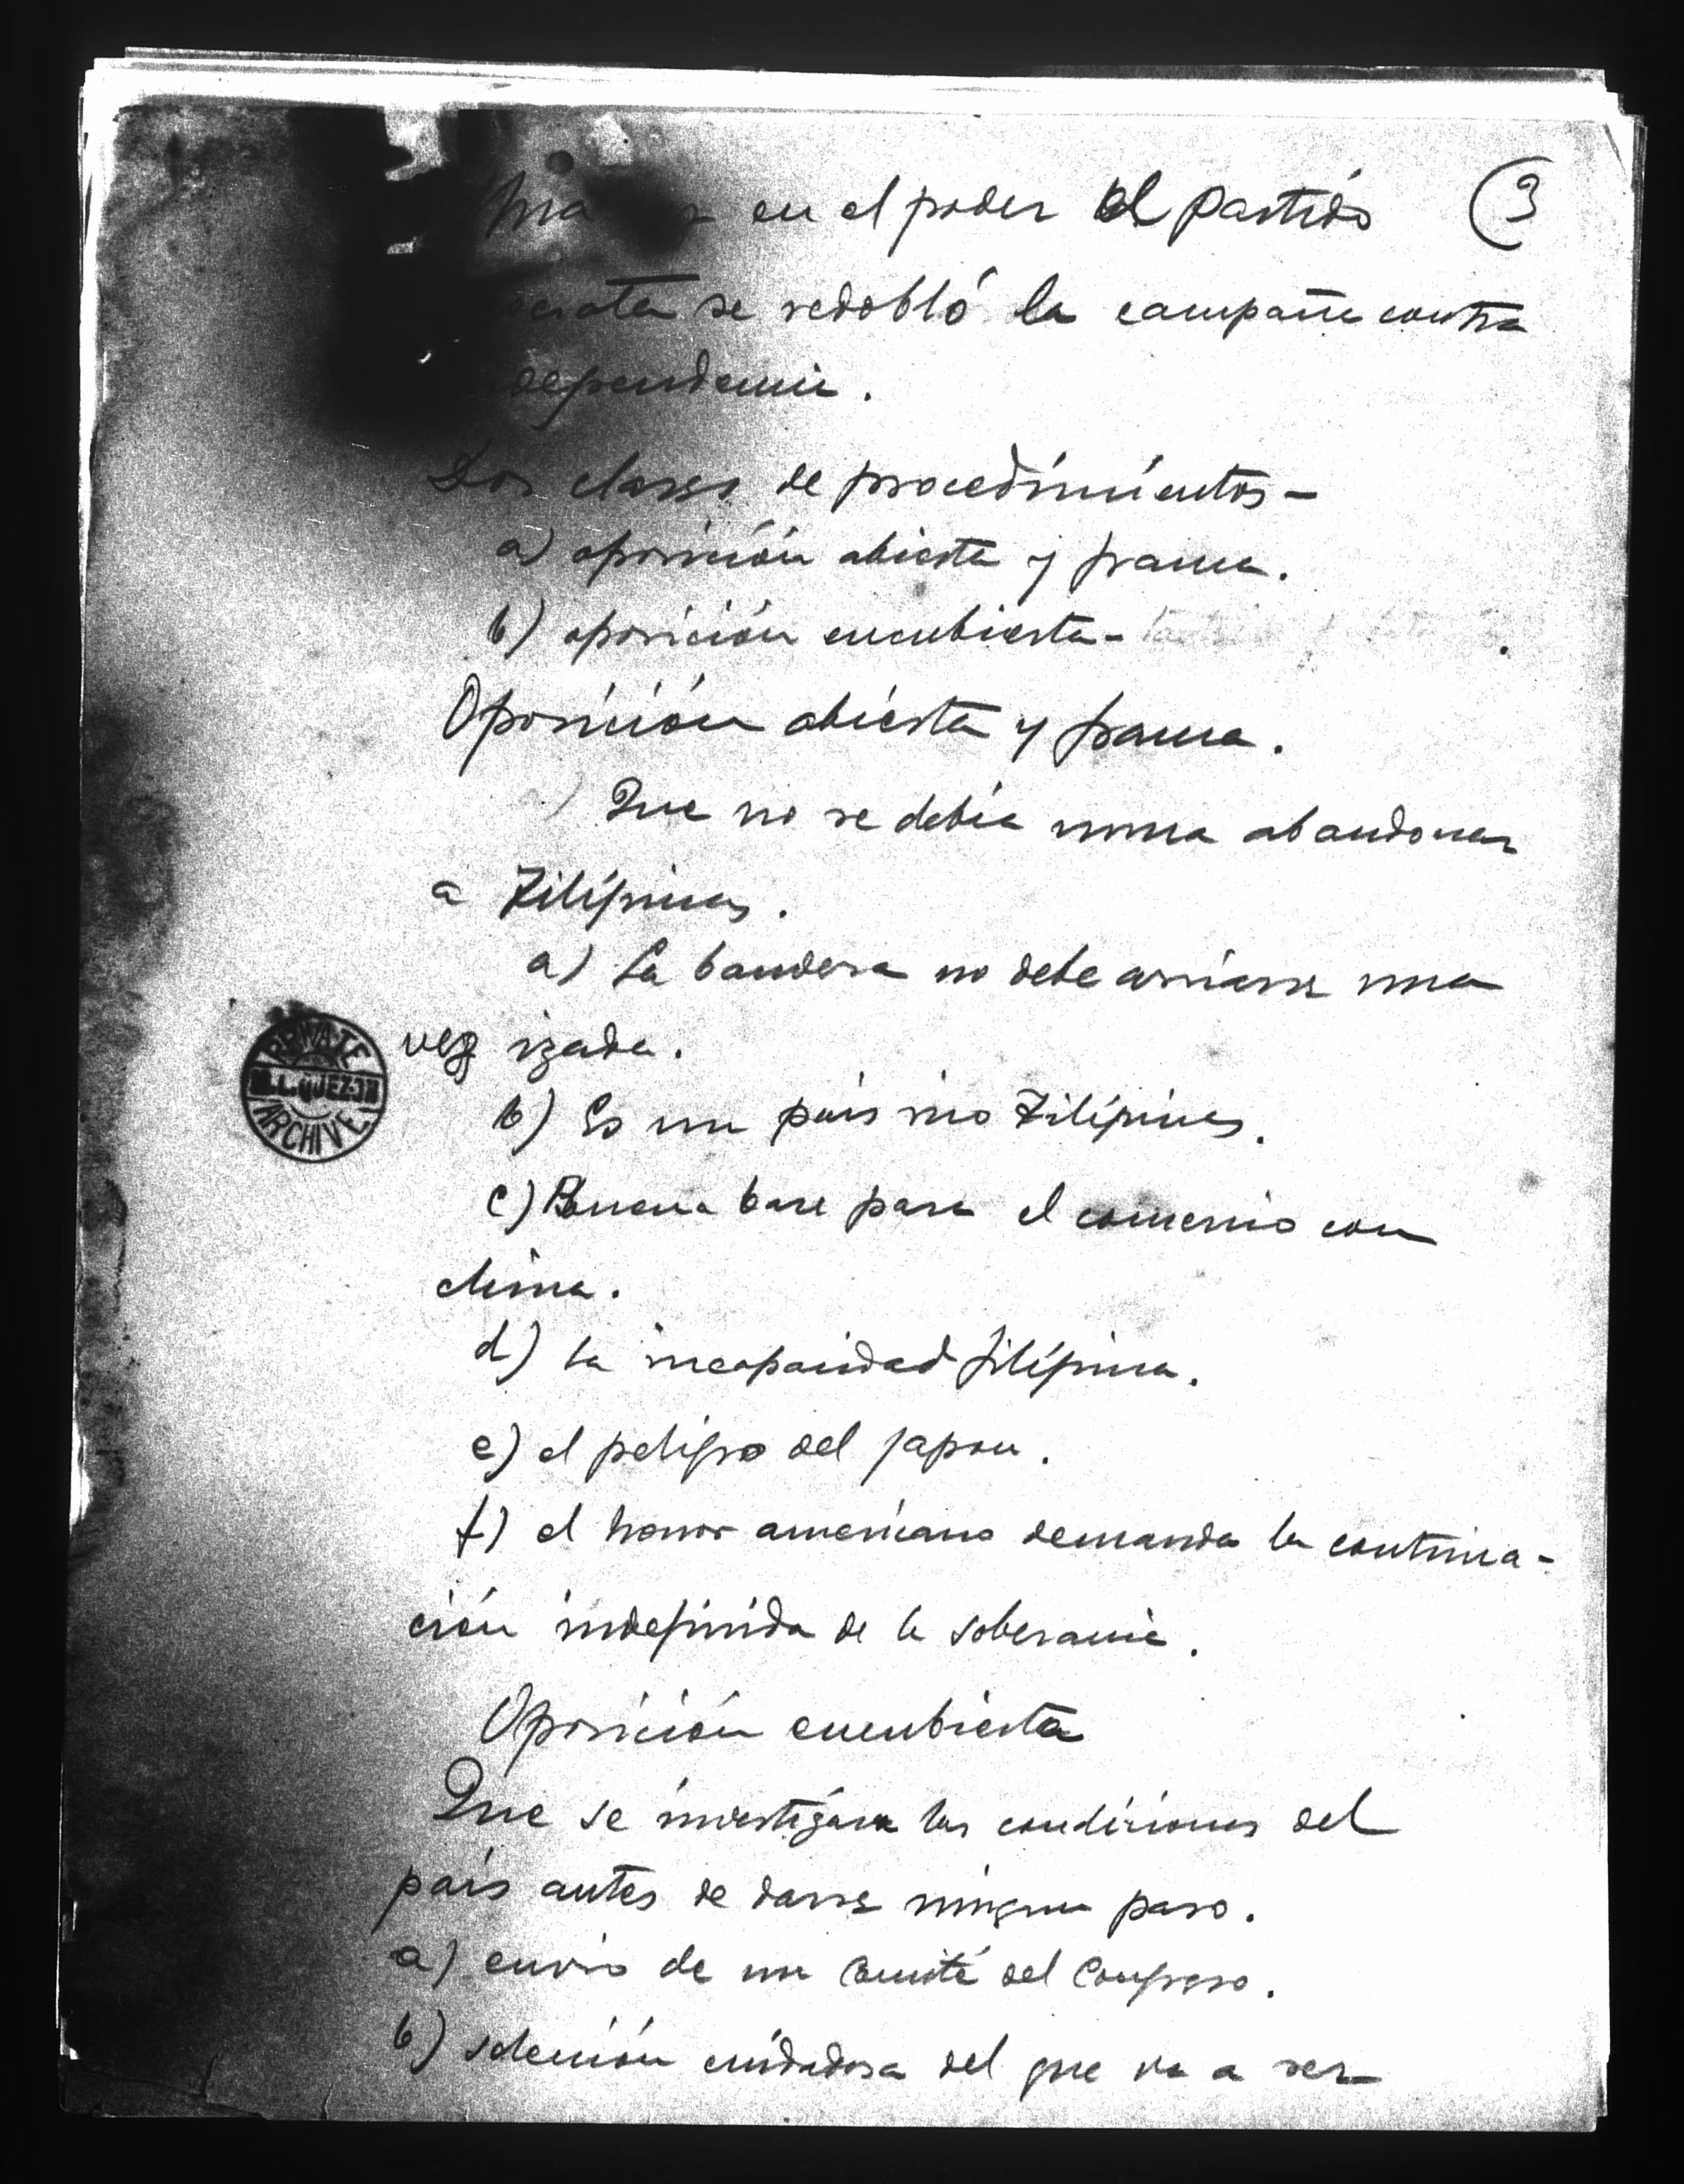 en el poder el partido (3
se redobló la campaña contra
dependencia.
Dos clases de procedimientos—
a) oposición abierta y franca.
b) oposición encubierta—
Oposición abierta y franca.
Que no se debía nunca abandonar
a Filipinas.
a) La bandera no debe arriarse una
vez izada.
b) Es un país rico Filipinas.
c) Buena base para el comercio con
China.
d) La incapacidad filipina.
e) el peligro del Japon.
f) el honor americano demanda la continua-
ción indefinida de la soberanía.
Oposición encubierta
Que se investigara las condiciones del
país antes de darse ningun paso.
a) envio de un Comité del Congreso.
b) selección cuidadosa del que va a ser
PRIVATE
M. L. QUEZON
ARCHIVE